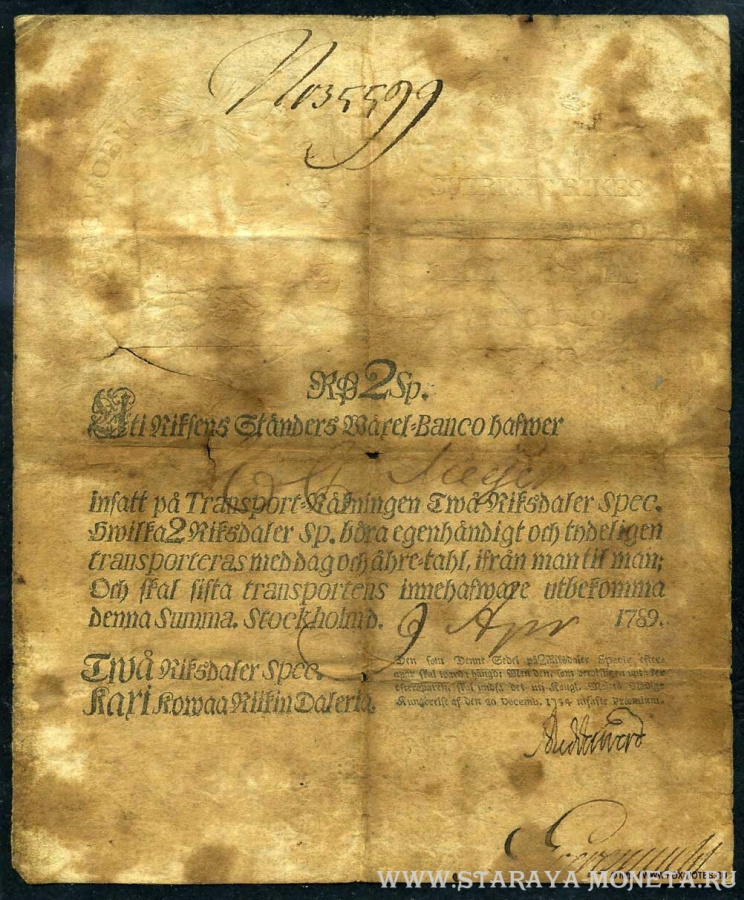 No 35599
SVERIGES RIKES
RD 2 Sp.
Uti Riksens Ständers Wäxel-Banco hafwer
insatt på Transport-Räkningen Twå Riksdaler Spec.
Hwilka 2 Riksdaler Sp. böra egenhändigt och tydeligen
transporteras med dag och åhre-tahl, ifrån man til man;
Och skal sista transportens innehafware utbekomma
denna Summa. Stockholm d. 9 Apr 1789.
Twå Riksdaler Spec.
Kaxi Kowaa Riikin Daleria.
Den som Denne Sedel på 2 Riksdaler Specie efter-
gör skal warda hängd: Men den, som bewisligen uptäcker
efteraparen, skal undfå det uti Kongl.
Kungörelse af den 20 Decemb. 1754 utfäste Præmium.
WWW.STARAYA-MONETA.RU